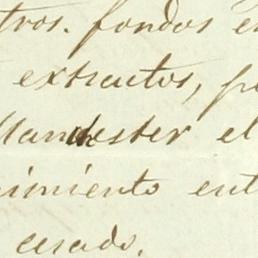 tros. fondos en
extractos, p
Manchester el
imiento ent
cesado.